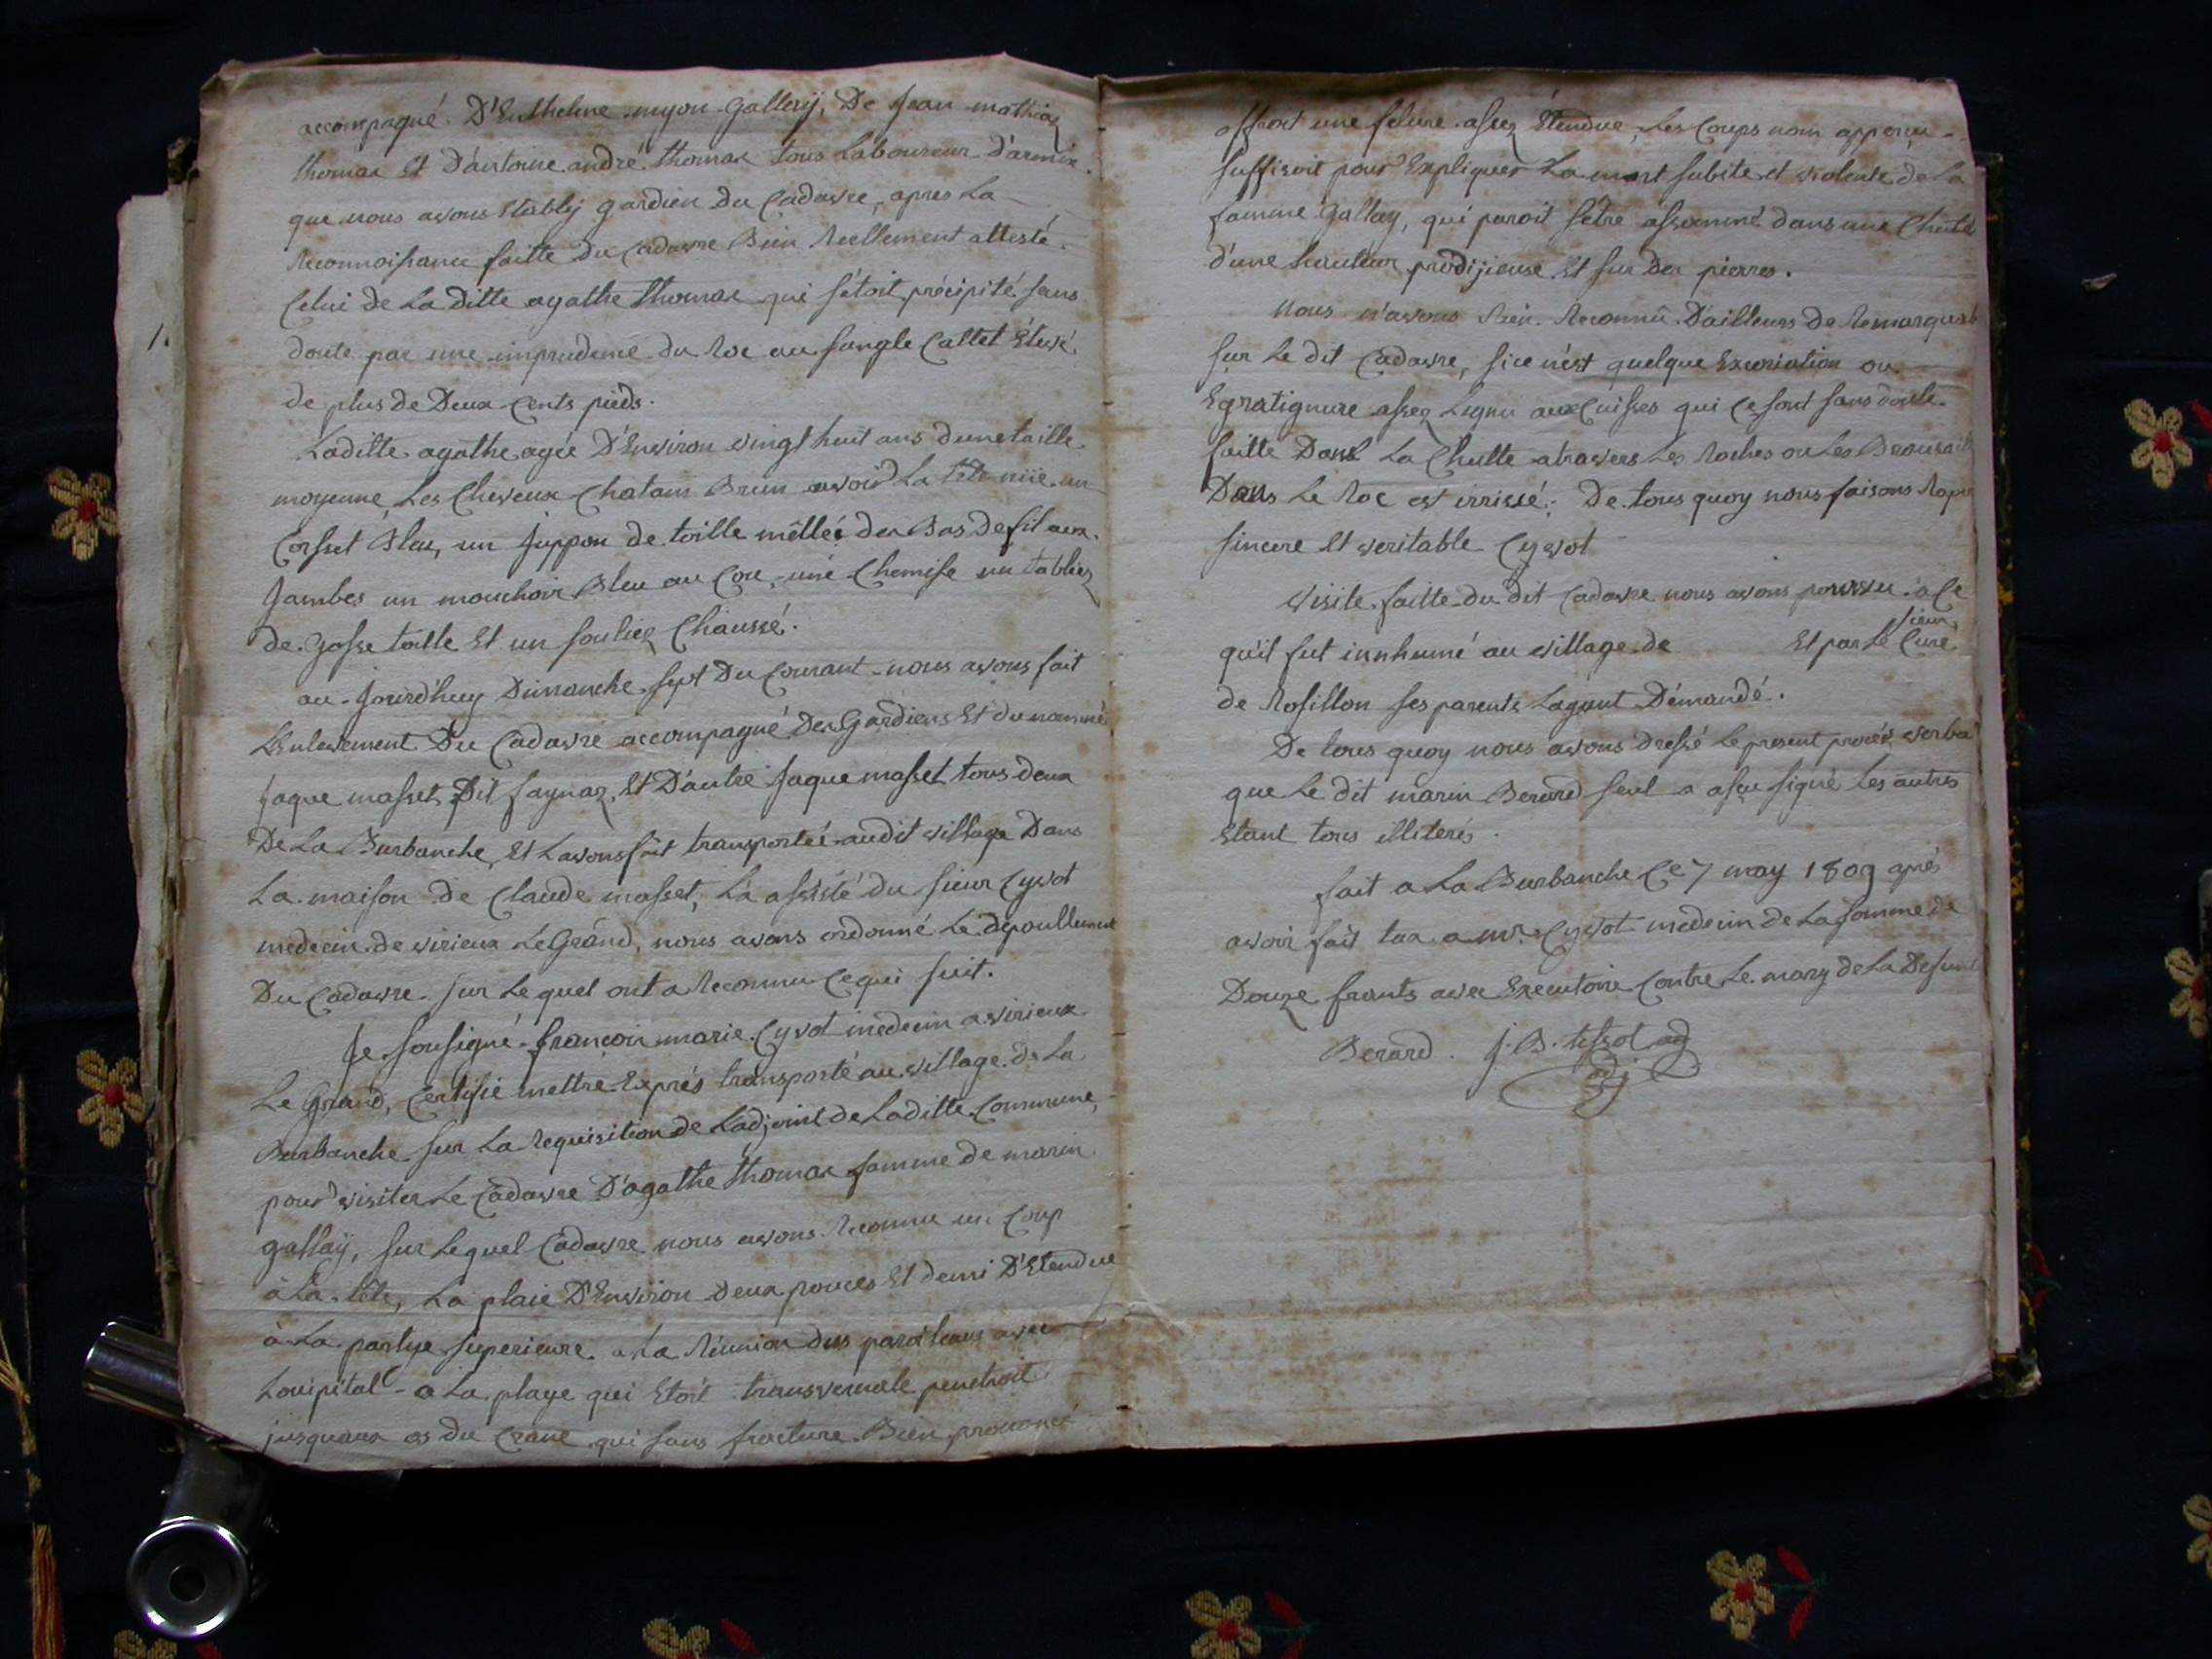 accompagné D'Enthelme myon-Gallëy, De Jean mathiaz
thomas Et D'antoine andré thomas tous Laboureur D'armix
que nous avons Etablij gardien Du Cadavre, apres La
Reconnoissance faitte du Cadavre Bien Reellement attesté
Celui de La ditte agathe thomas qui s'étoit précipité sans
doute par une imprudence du Roc au sangle Caltet Elevé
de plus de Deux Cents pieds.
Laditte agathe agée D'Environ vingt huit ans dune taille
moyenne Les Cheveux Chatain Brun avoit La tête nüe un
Corset Bleu, un Juppon de toille mêllée des Bas de fil aux
Jambes un mouchoir Bleu au Cou, une Chemise un tablier
de Gosse toille Et un soulier Chaussé.
au-Jourd'huy Dimanche sept Du Courant nous avons fait
L'Enlevement Du Cadavre accompagné Des Gardiens Et du nommé
Jaque masset Dit faynaz, Et D'autre Jaque masset tous deux
De La Burbanche, Et L'avons fait transportée audit village Dans
La maison de Claude masset, La assisté du sieur Cyvot
medecin de virieux Le Grand, nous avons ordonné Le depoullement
Du Cadavre sur Le quel ont a Reconnu Ce qui suit.
Je sousigné françoi marie Cyvot medecin a virieux
Le Grand, Certifie mettre Exprés transporté au village de La
Burbanche sur La Requisition de Ladjoint de Laditte Commune,
pour visiter Le Cadavre D'agathe thomas famme de marin
gallaÿ, sur Lequel Cadavre nous avons Reconnu un Coup
à La tête, La plaie D'Environ Deux pouces Et demi D'Etendue
à La partye superieure a La Réunion des pariéteaux avec
Loccipital - a La playe qui Etoit transversale penetroit
jusquaux os du Crane qui sans fracture Bien prononcé
offroit une felure assez Etendue, Les Coups nom apperçu
suffisoit pour Expliquer La mort subite et violente de La
famme Gallay, qui paroit s'être assommé dans une Chute
d'une hauteur prodijieuse Et sur Des pierres.
Nous n'avons Rien Reconnû D'ailleurs de Remarquab
sur Le dit Cadavre, si ce n'est quelque Excoriation ou
Egratignure assez Legere aux Cuisses qui Ce sont sans doute
faitte Dans La Chutte atravers Les Roches ou Les Brousail
Dans Le Roc est irrissé; De tous quoy nous faisons Rapor
sincere Et veritable Cyvot
Visite faitte du dit Cadavre nous avons pourvu a Ce
qu'il fut innhumé au village de Et par Le sieur Curé
de Rossillon ses parents Layant Démandé.
De tous quoy nous avons dressé Le present procès verba
que Le dit marin Berard seul a asçu signé Les autres
Etant tous illiterés.
fait a La Burbanche Ce 7 may 1809 aprés
avoir fait tax a mr Cyvot medecin de La somme de
Douze frants avec Executoire Contre Le mary de La Defunte
Berard. J. B. tessot adj
adj